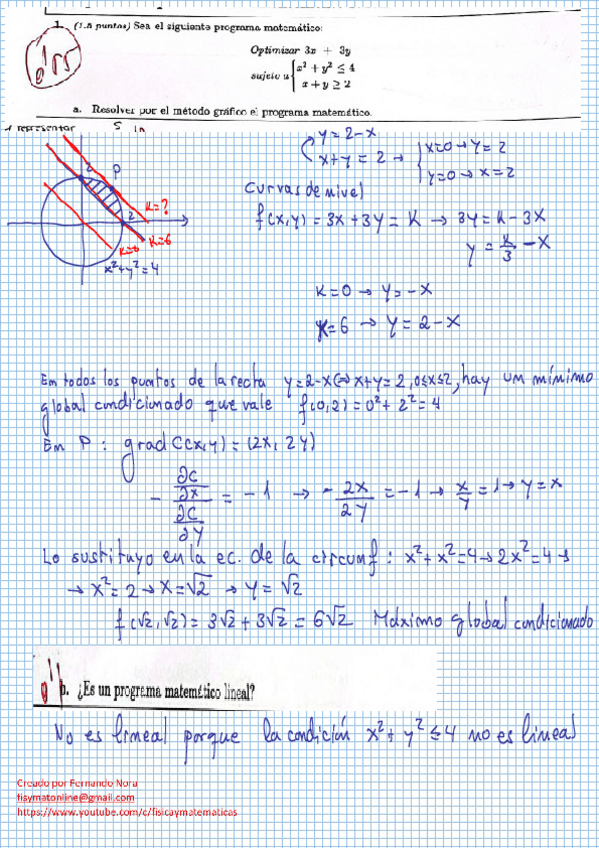 1. (1.5 puntos) Sea el siguiente programa matemático:
Optimizar 3x + 3y
sujeto a { x² + y² ≤ 4
x + y ≥ 2
a. Resolver por el método gráfico el programa matemático.
representar
y = 2-x
x+y = 2 → { x=0 → y = 2
y=0 → x = 2
Curvas de nivel
f(x,y) = 3x+3y = K → 3y = K-3x
y = K/3 - x
K=0 → y=-x
K=6 → y = 2-x
2
P
K=?
2
K=6
K=0
x²+y²=4
En todos los puntos de la recta y=2-x⇔x+y=2, 0≤x≤2, hay un mínimo
global condicionado que vale f(0,2)=0²+2²=4
En P: grad C(x,y) = (2x, 2y)
- (∂C/∂x)/(∂C/∂y) = -1 → - 2x/2y = -1 → x/y = 1 → y=x
Lo sustituyo en la ec. de la circunf: x²+x²=4 → 2x²=4 →
→ x²=2 → x=√2 → y=√2
f(√2,√2) = 3√2+3√2 = 6√2 Máximo global condicionado
b. ¿Es un programa matemático lineal?
No es lineal porque la condición x²+y²≤4 no es lineal
Creado por Fernando Nora
fisymatonline@gmail.com
https://www.youtube.com/c/fisicaymatematicas